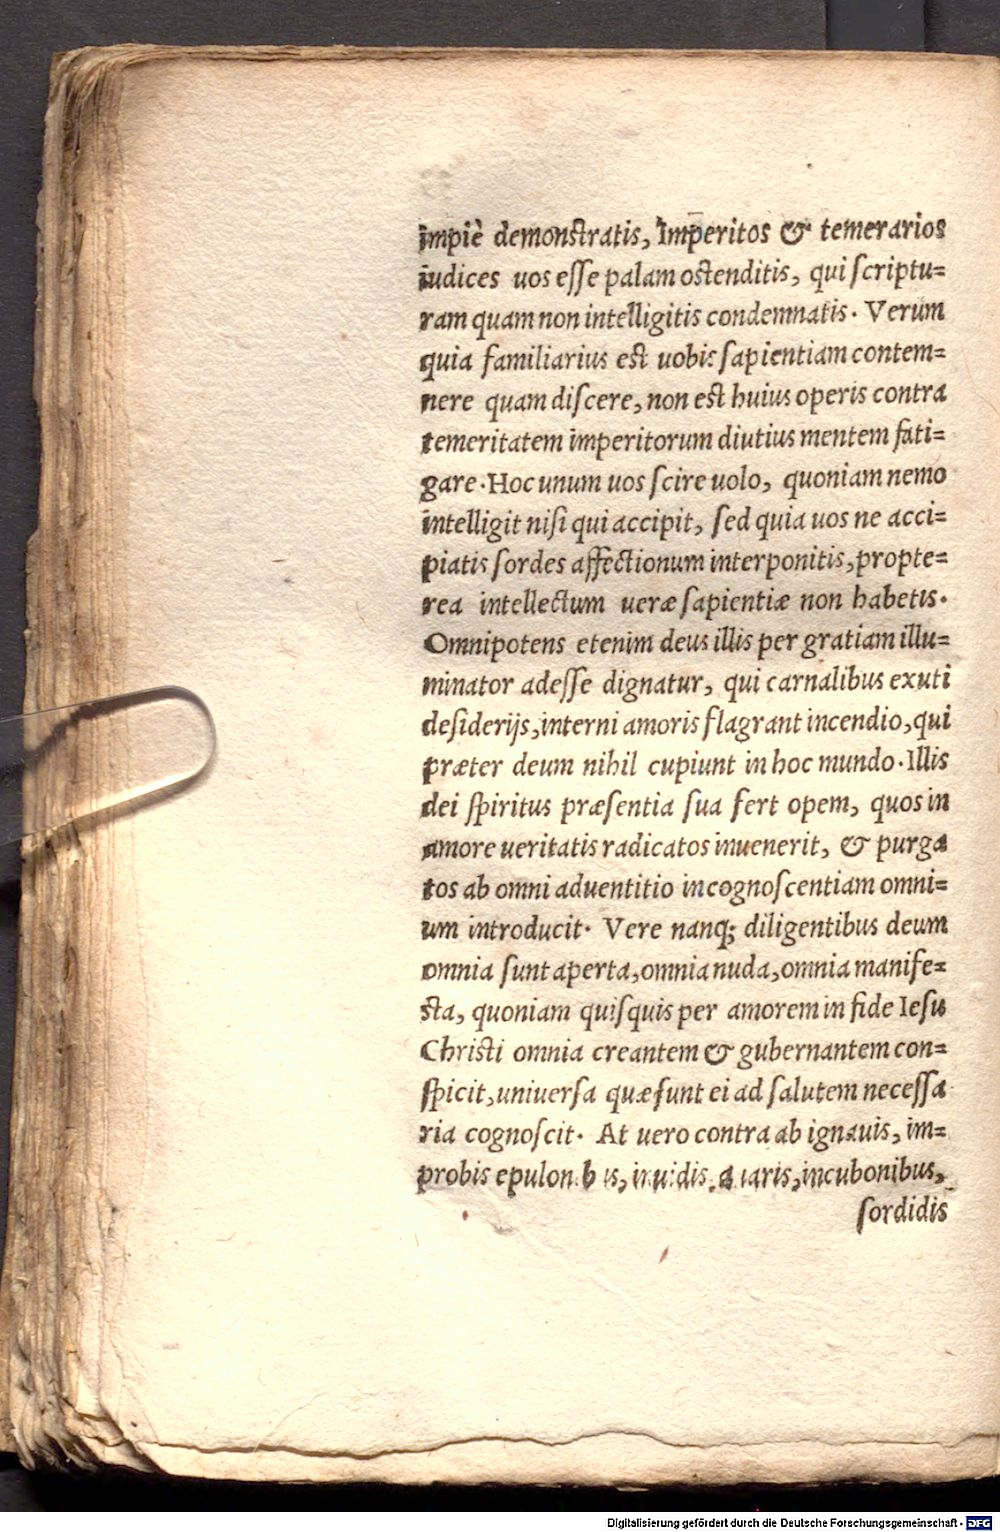 impiè demonstratis, Imperitos & temerarios
iudices uos esse palam ostenditis, qui scriptu=
ram quam non intelligitis condemnatis. Verum
quia familiarius est uobis sapientiam contem=
nere quam discere, non est huius operis contra
temeritatem imperitorum diutius mentem fati=
gare. Hoc unum uos scire uolo, quoniam nemo
intelligit nisi qui accipit, sed quia uos ne acci=
piatis sordes affectionum interponitis, propte=
rea intellectum ueræ sapientiæ non habetis.
Omnipotens etenim deus illis per gratiam illu=
minator adesse dignatur, qui carnalibus exuti
desiderijs, interni amoris flagrant incendio, qui
præter deum nihil cupiunt in hoc mundo. Illis
dei spiritus præsentia sua fert opem, quos in
amore ueritatis radicatos inuenerit, & purga
tos ab omni aduentitio in cognoscentiam omni=
um introducit. Vere nanq; diligentibus deum
omnia sunt aperta, omnia nuda, omnia manife=
sta, quoniam quisquis per amorem in fide Iesu
Christi omnia creantem & gubernantem con=
spicit, uniuersa quæ sunt ei ad salutem necessa
ria cognoscit. At uero contra ab ignauis, im=
probis epulonibus, inuidis, auaris, incubonibus,
sordidis
Digitalisierung gefördert durch die Deutsche Forschungsgemeinschaft - DFG